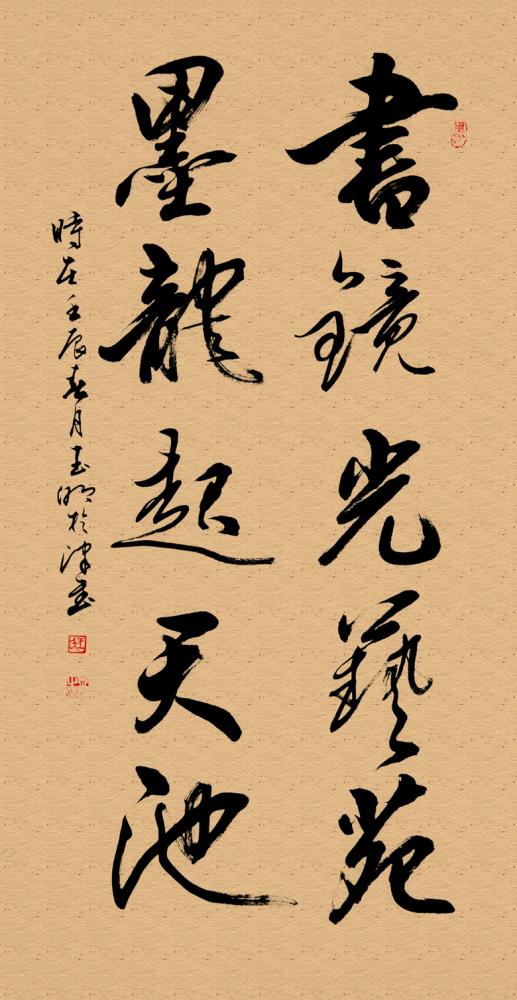 書鏡光藝苑
墨龍起天池
時在壬辰春月玉明於津書